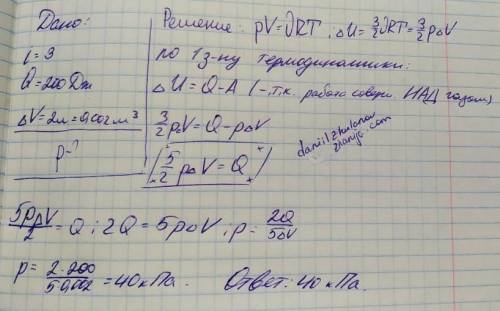 Дано:
i = 3
Q = 200 Дж
ΔV = 2л = 0,002 м³
p - ?
Решение: pV = νRT, ΔU = 3/2 νRT = 3/2 pΔV
по 1 з-ну термодинамики:
ΔU = Q - A (-, т.к. работа соверш. НАД газом)
3/2 pΔV = Q - pΔV
5/2 pΔV = Q
5pΔV/2 = Q; 2Q = 5pΔV; p = 2Q/5ΔV
p = 2·200/5·0,002 = 40 кПа.
Ответ: 40 кПа.